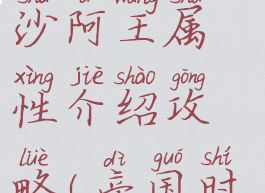 沙阿王属
xìng jiè shào gōng
性介绍攻
lüè dì guó shí
略(帝国时